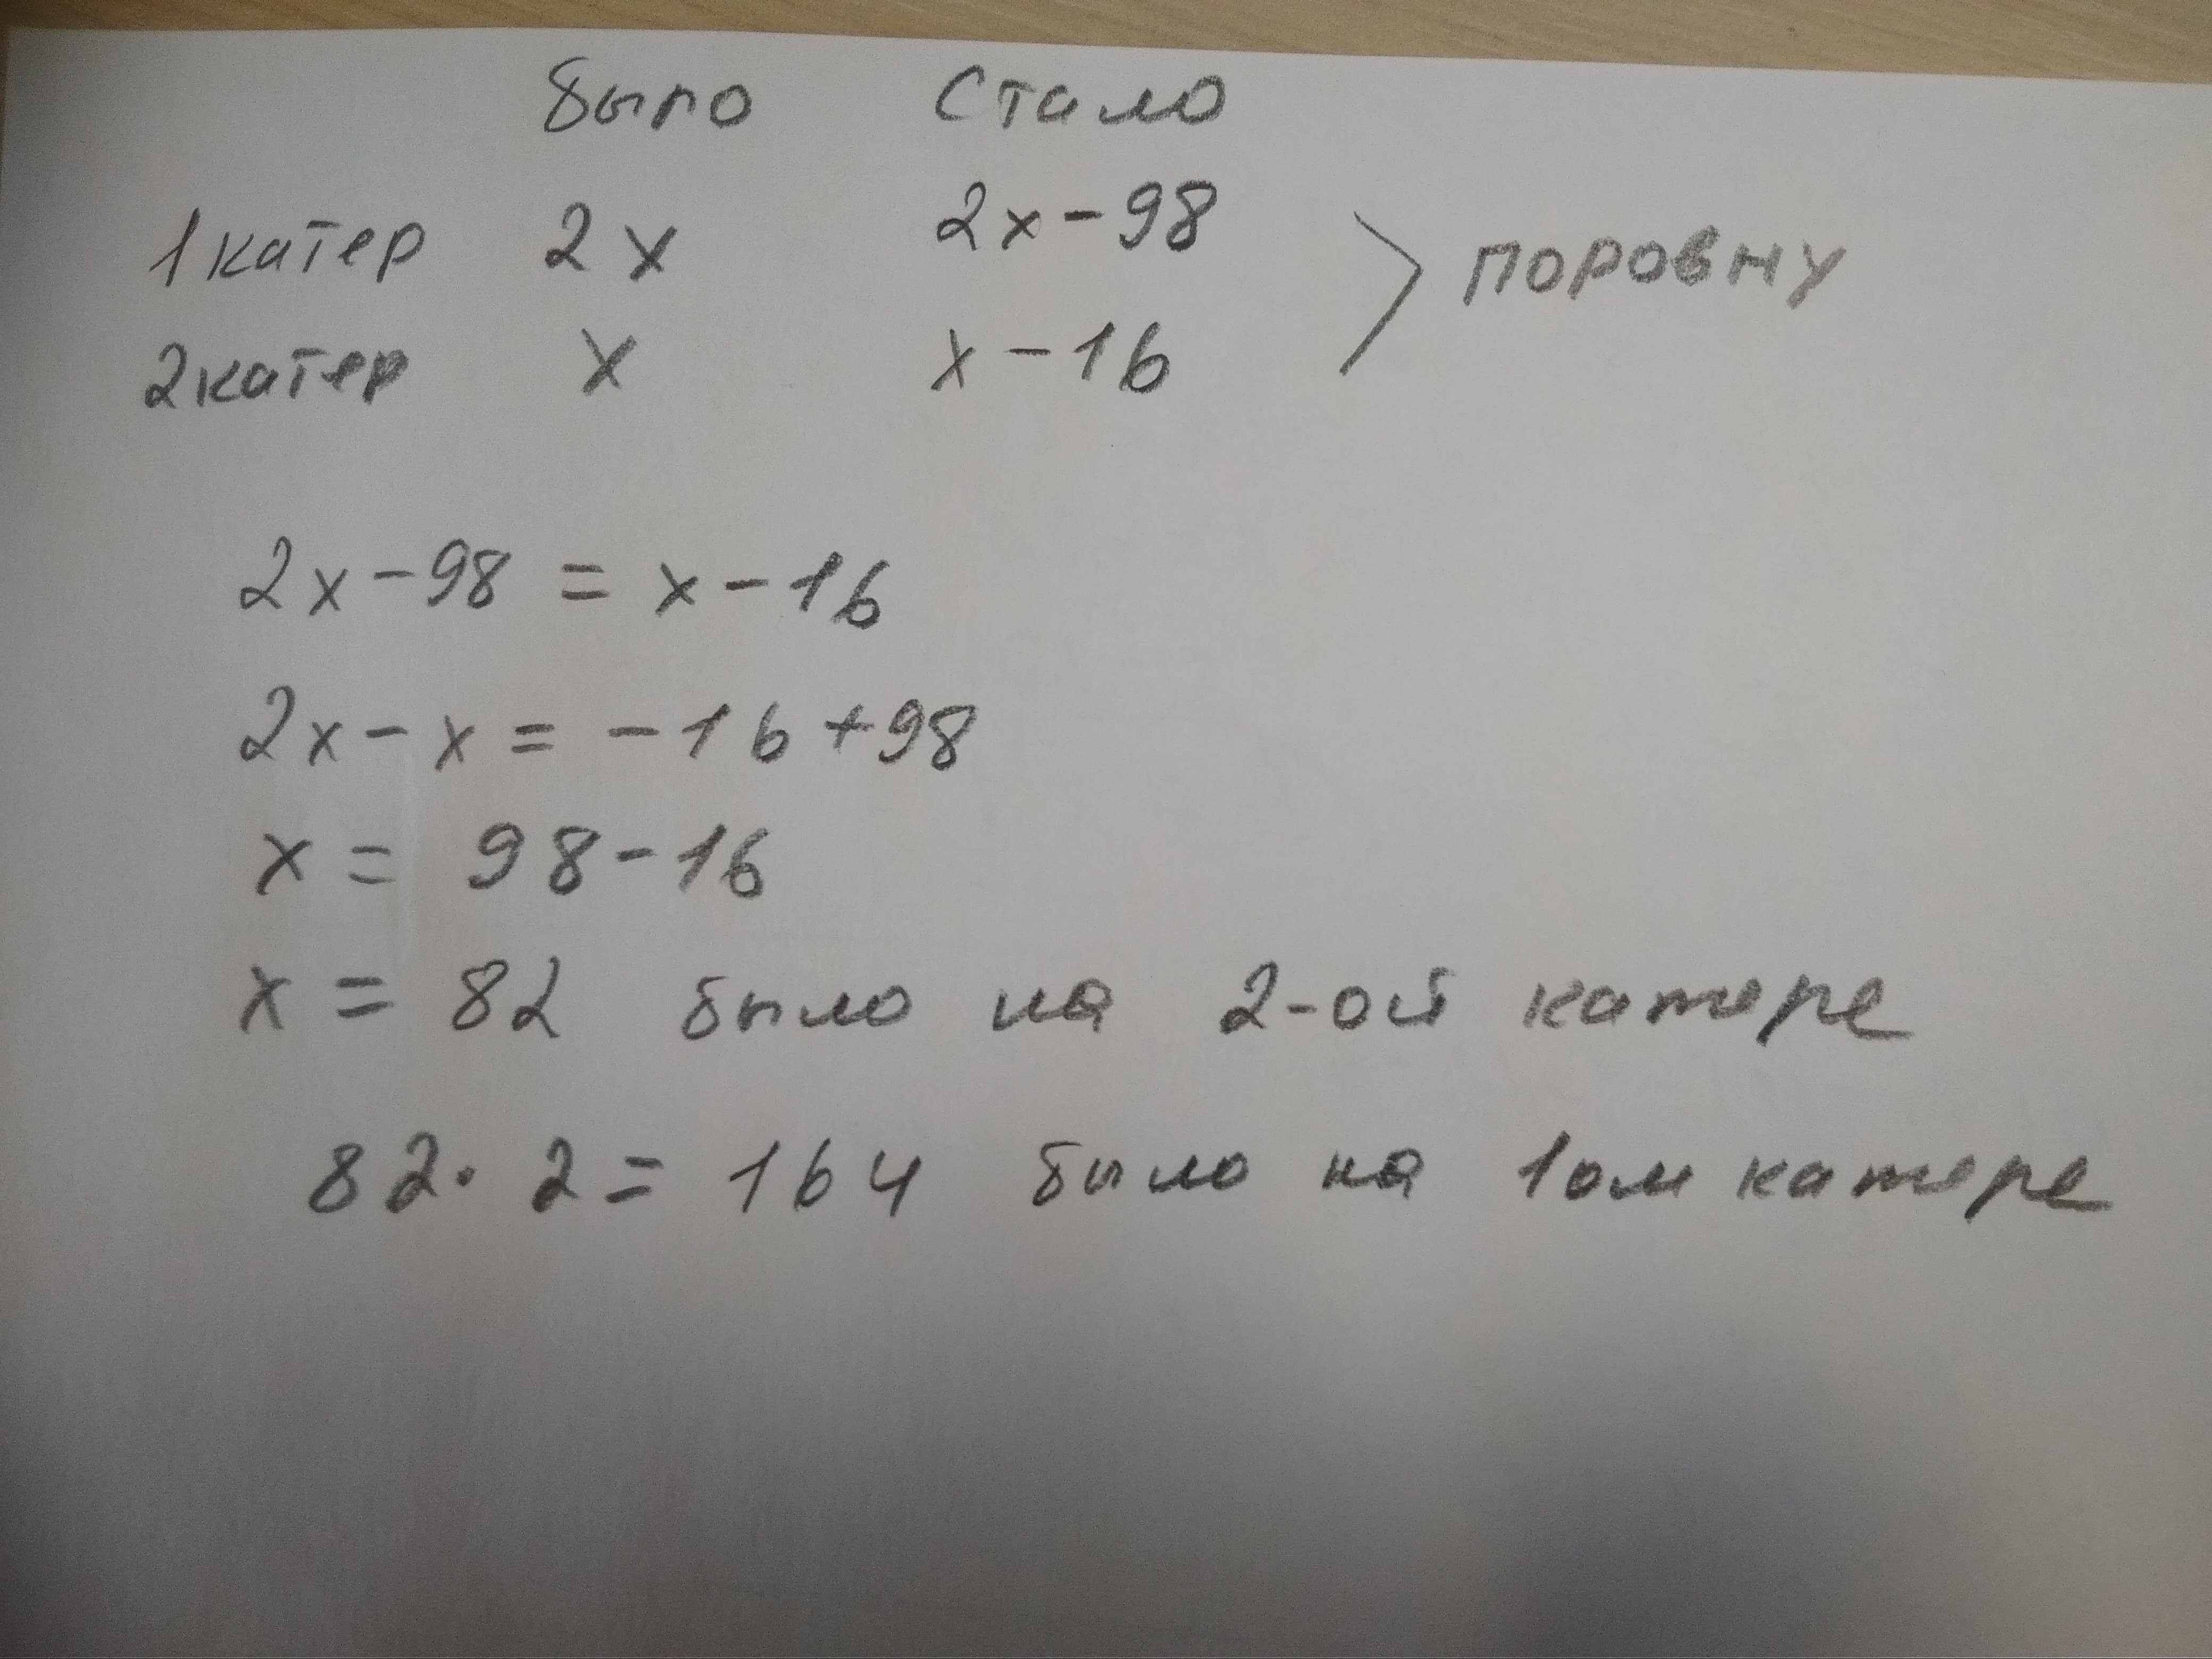 было стало
1 катер 2x 2x-98
поровну
2 катер x x-16
2x-98 = x-16
2x-x = -16+98
x = 98-16
x = 82 было на 2-ой катере
82·2= 164 было на 1ом катере